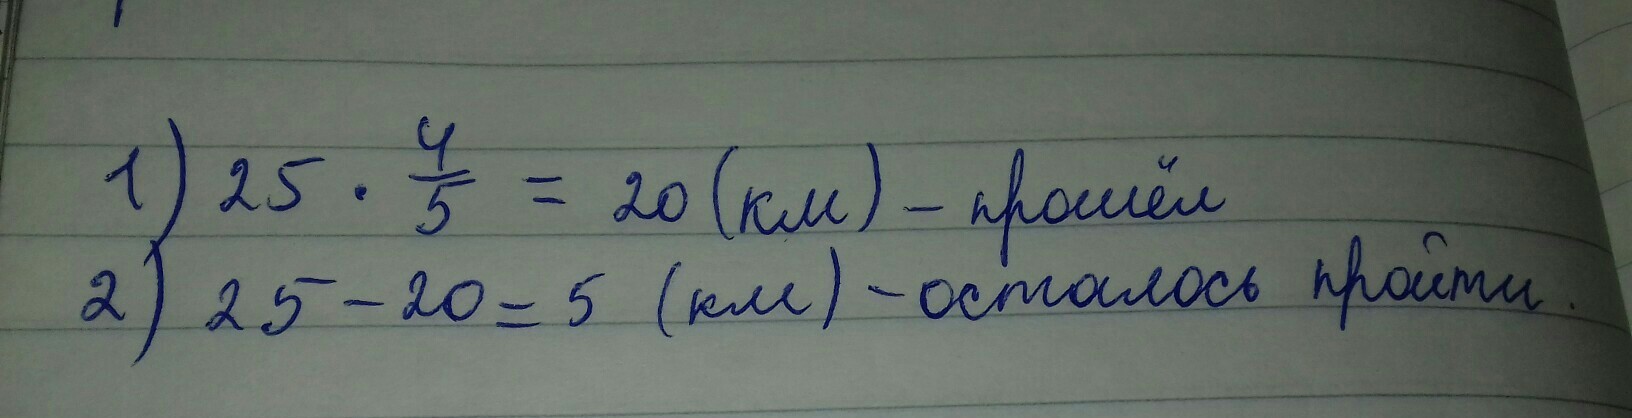 1) 25 · 4/5 = 20 (км) – прошёл
2) 25 – 20 = 5 (км) – осталось пройти.